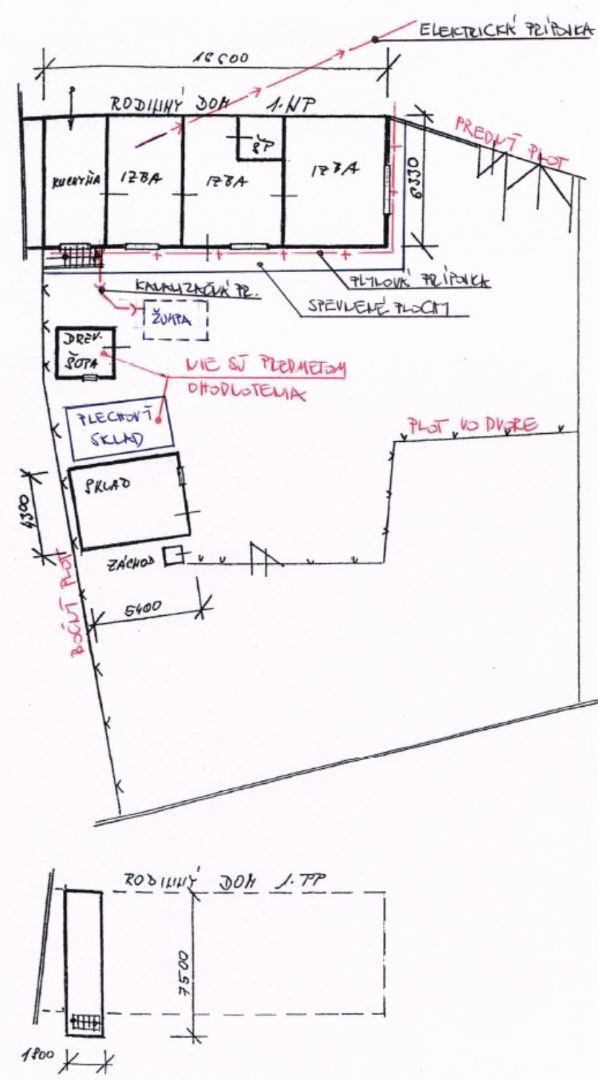 ELEKTRICKÁ PRÍPOJKA
16600
RODINNÝ DOM 1.NP
PREDNÝ PLOT
ŠP
KUCHYŇA
IZBA
IZBA
IZBA
6330
KANALIZAČNÁ PR.
PLYNOVÁ PRÍPOJKA
SPEVNENÉ PLOCHY
ŽUMPA
DREV.
ŠOPA
NIE SÚ PREDMETOM
OHODNOTENIA
PLECHOVÝ
SKLAD
PLOT VO DVORE
SKLAD
4300
ZÁCHOD
BOČNÝ PLOT
5400
RODINNÝ DOM 1.PP
7500
1800